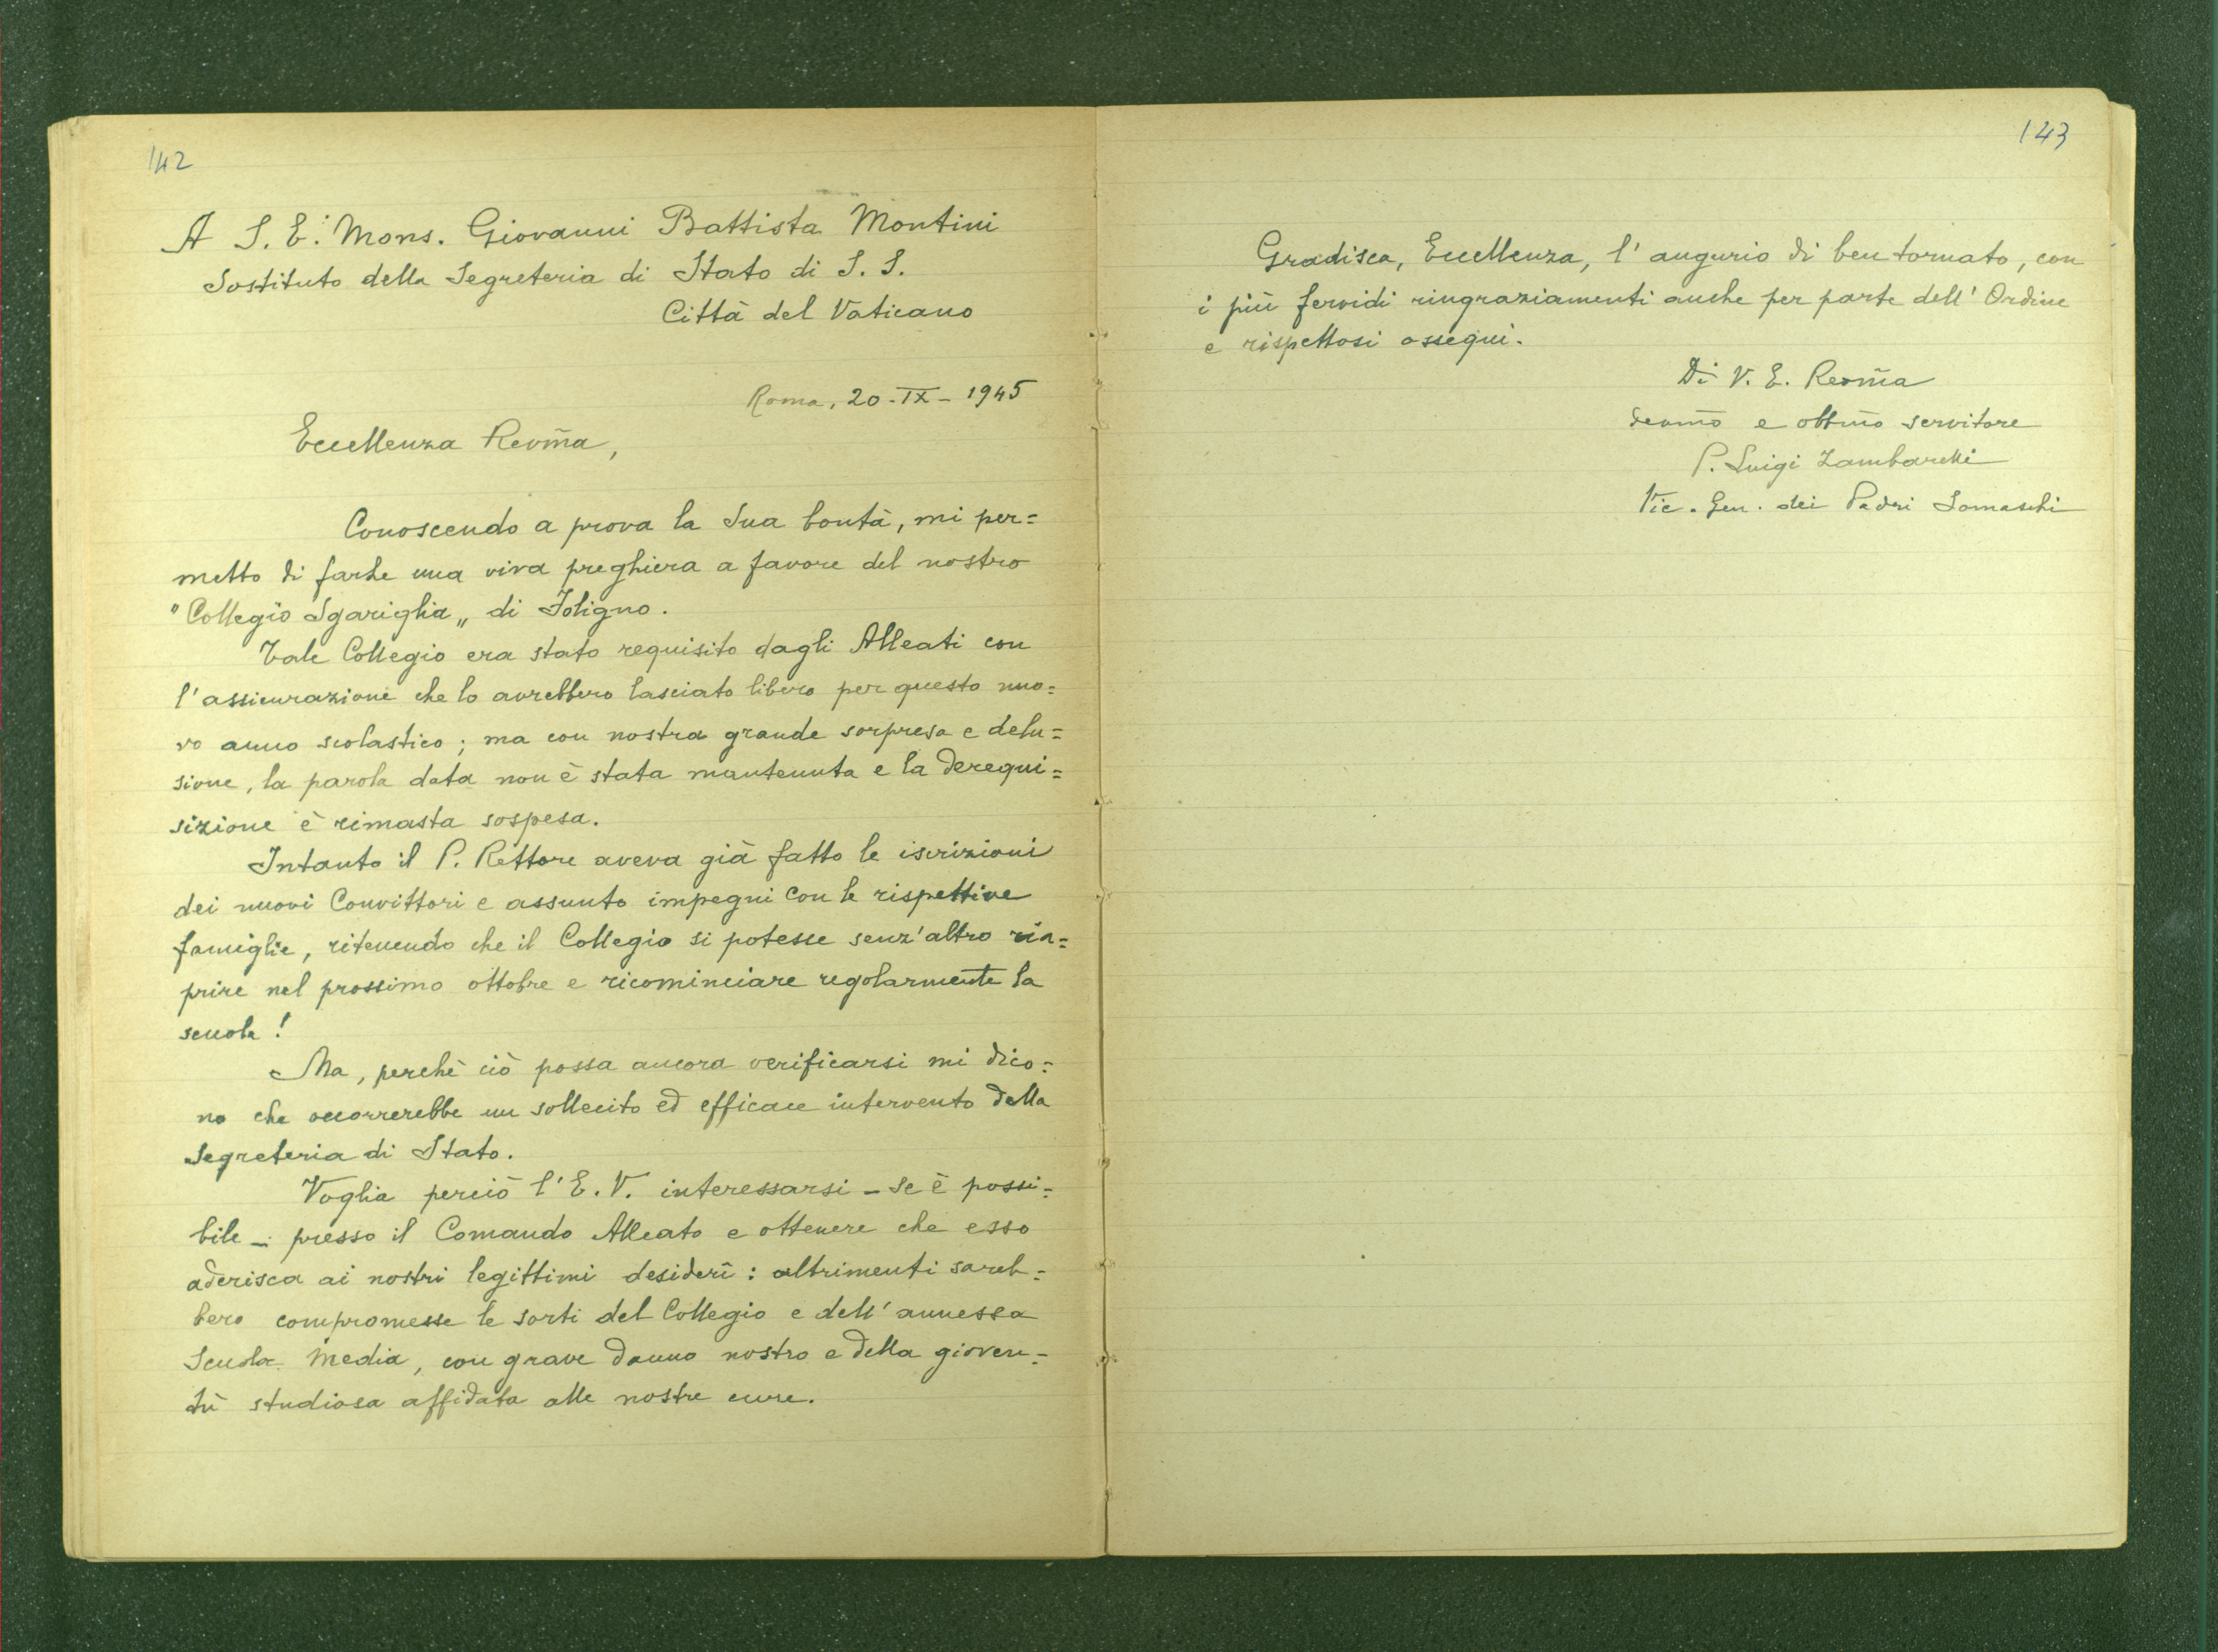 142
A S. E. Mons. Giovanni Battista Montini
Sostituto della Segreteria di Stato di S. S.
Città del Vaticano
Roma, 20-IX-1945
Eccellenza Revm̃a,
Conoscendo a prova la Sua bontà, mi per=
metto di farLe una viva preghiera a favore del nostro
"Collegio Sgariglia„ di Foligno.
Tale Collegio era stato requisito dagli Alleati con
l'assicurazione che lo avrebbero lasciato libero per questo nuo=
vo anno scolastico; ma con nostra grande sorpresa e delu=
sione, la parola data non è stata mantenuta e la derequi=
sizione è rimasta sospesa.
Intanto il P. Rettore aveva già fatto le iscrizioni
dei nuovi Convittori e assunto impegni con le rispettive
famiglie, ritenendo che il Collegio si potesse senz'altro ria=
prire nel prossimo ottobre e ricominciare regolarmente la
scuola!
Ma, perchè ciò possa ancora verificarsi mi dico=
no che occorrerebbe un sollecito ed efficace intervento della
Segreteria di Stato.
Voglia perciò l'E. V. interessarsi - se è possi=
bile - presso il Comando Alleato e ottenere che esso
aderisca ai nostri legittimi desiderî: altrimenti sareb=
bero compromesse le sorti del Collegio e dell'annessa
Scuola Media, con grave danno nostro e della gioven=
tù studiosa affidata alle nostre cure.
143
Gradisca, Eccellenza, l'augurio di ben tornato, con
i più fervidi ringraziamenti anche per parte dell'Ordine
e rispettosi ossequi.
Di V. E. Revm̃a
devmo e obbmo servitore
P. Luigi Zambarelli
Vic. Gen. dei Padri Somaschi